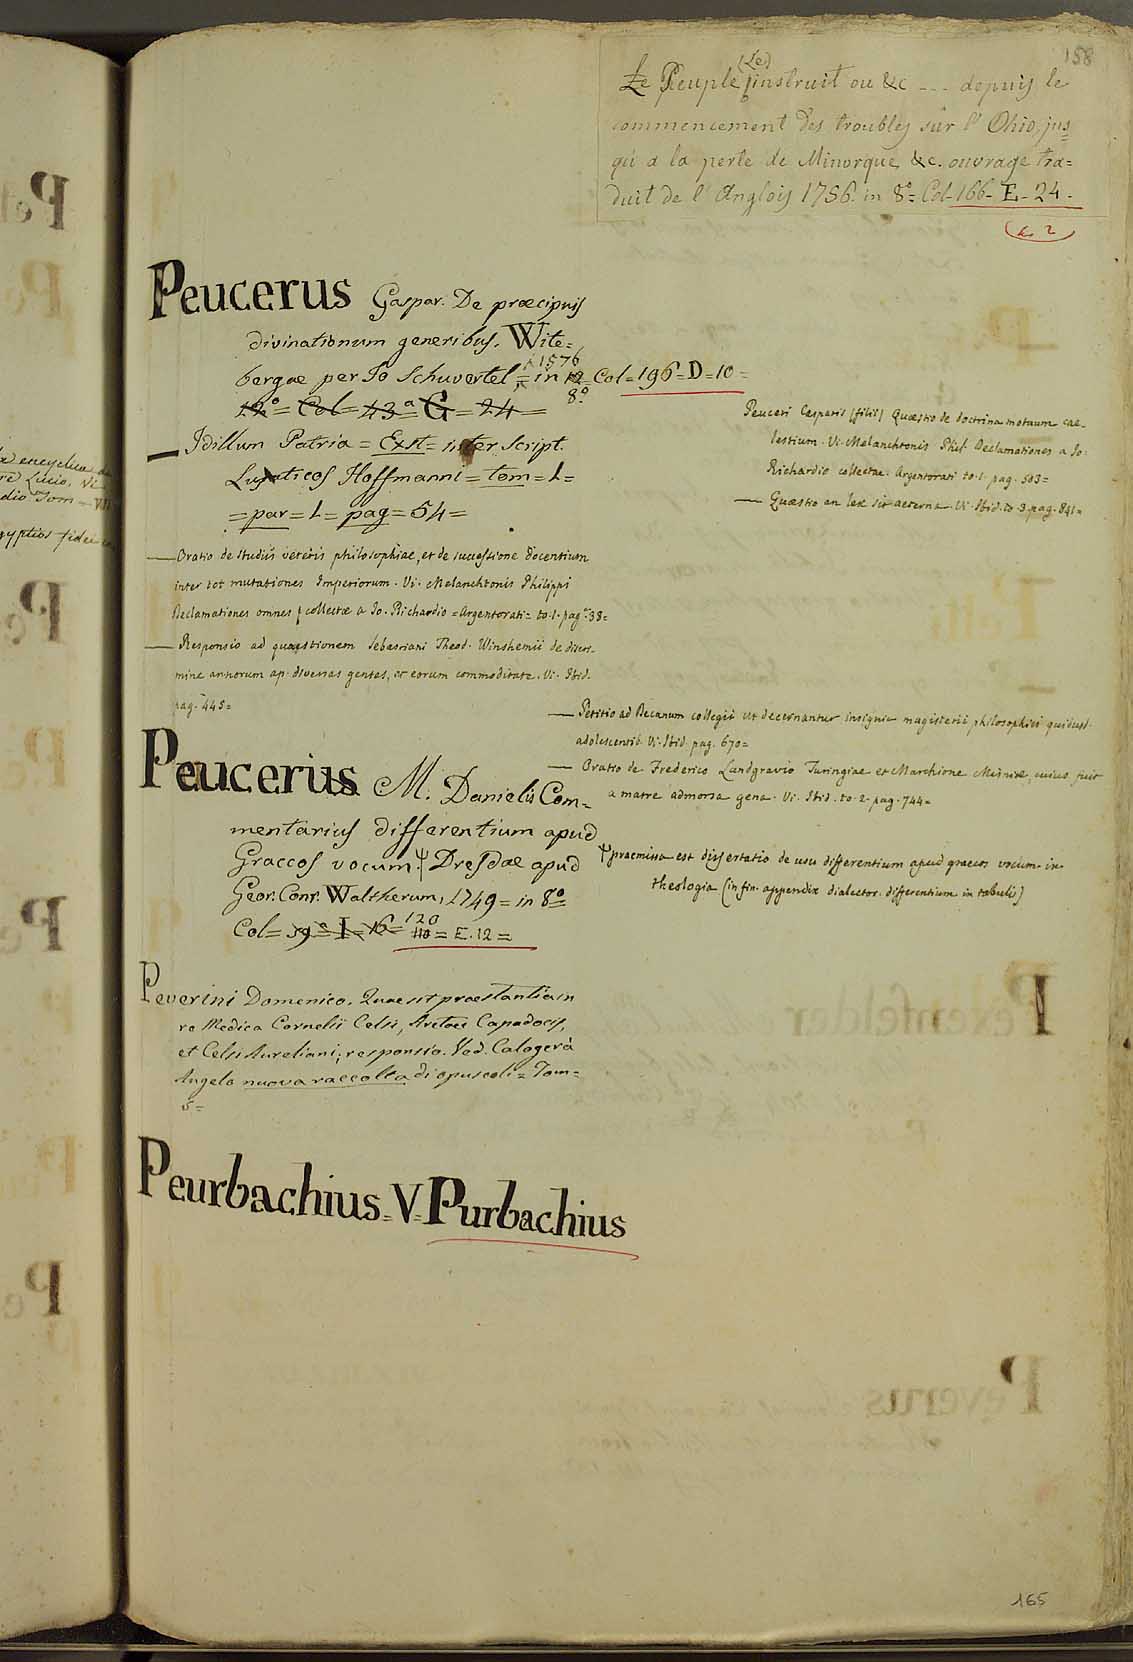 158
Le Peuple (Le) instruit ou &c --- depuis le
commencement des troubles sûr l' Ohio, jus
qú a la perte de Minorque, &c. ouvrage tra=
duit de l' Anglois 1756. in 8.º= Col-166-E-24-
Peucerus Gaspar. De præcipuis
divinationum generibus. Wite=
bergae per Jo Schuvertel,= 1576 in 12 8º = Col=196=D=10=
12º= Col= 43ª= G= 24=
— Idillum Patria = Exst= inter Script.
Lusaticos Hoffmanni = tom= 1=
=par= 1= pag= 54=
— Oratio de studiis veteris philosophiae, et de successione docentium
inter tot mutationes Imperiorum. Vi. Melanchtonis Philippi
Declamationes omnes collectæ a Jo. Richardio = Argentorati= to. 1. pag. 38=
— Responsio ad quæstionem Sebastiani Theod. Winshemii de discri-
mine annorum ap. diversas gentes, et eorum commoditate. Vi. Ibid.
pag. 445=
Peuceri Casparis (filii) Quæstio de doctrina motuum cae-
lestium. Vi. Melanchtonis Phil. Declamationes a Jo.
Richardio collectae. Argentorati to. 1. pag. 503=
— Quæstio an lex sit aeterna. Vi. Ibid. to. 3. pag. 841=
— Petitio ad Decanum collegii ut decernantur insignia magisterii philosophici quibusd.
adolescentib. Vi. Ibid. pag. 670=
— Oratio de Frederico Landgravio Turingiae et Marchione Misniæ, cuius fuit
a matre admorsa gena. Vi. Ibid. to. 2. pag. 744=
Peucerius M. Danielis Com=
mentarius differentium apud
Graecos vocum. Ψ Dresdae apud
Geor. Conr. Waltherum, 1749= in 8º=
Col= 39ª= I= 16= 120 110= E. 12=
Ψ praemissa est dissertatio de usu differentium apud graecos vocum in
theologia (in fin. appendix dialector. differentium in tabulis)
Peverini Domenico. Quae sit praestantia in
re Medica Cornelii Celsi, Aretaei Capadocis,
et Celsi Aureliani; responsio. Ved. Calogerà
Angelo nuova raccolta di opuscoli= Tom=
5=
Peurbachius= V= Purbachius
165